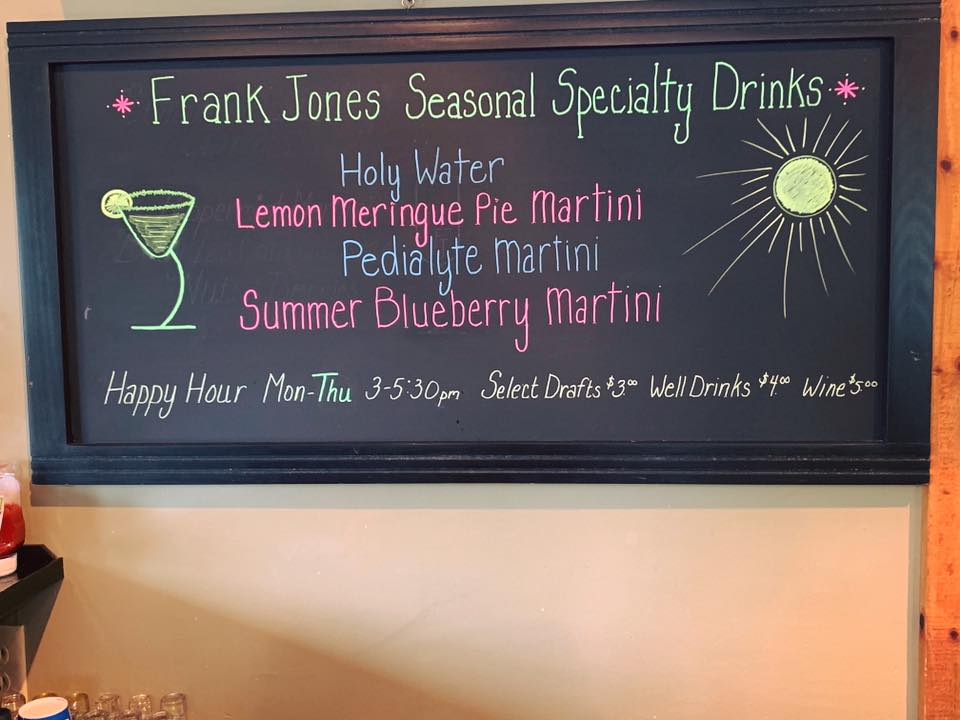 Frank Jones Seasonal Specialty Drinks
Holy Water
Lemon Meringue Pie Martini
Pedialyte Martini
Summer Blueberry Martini
Happy Hour Mon-Thu 3-5:30pm Select Drafts $3.00 Well Drinks $4.00 Wine $5.00